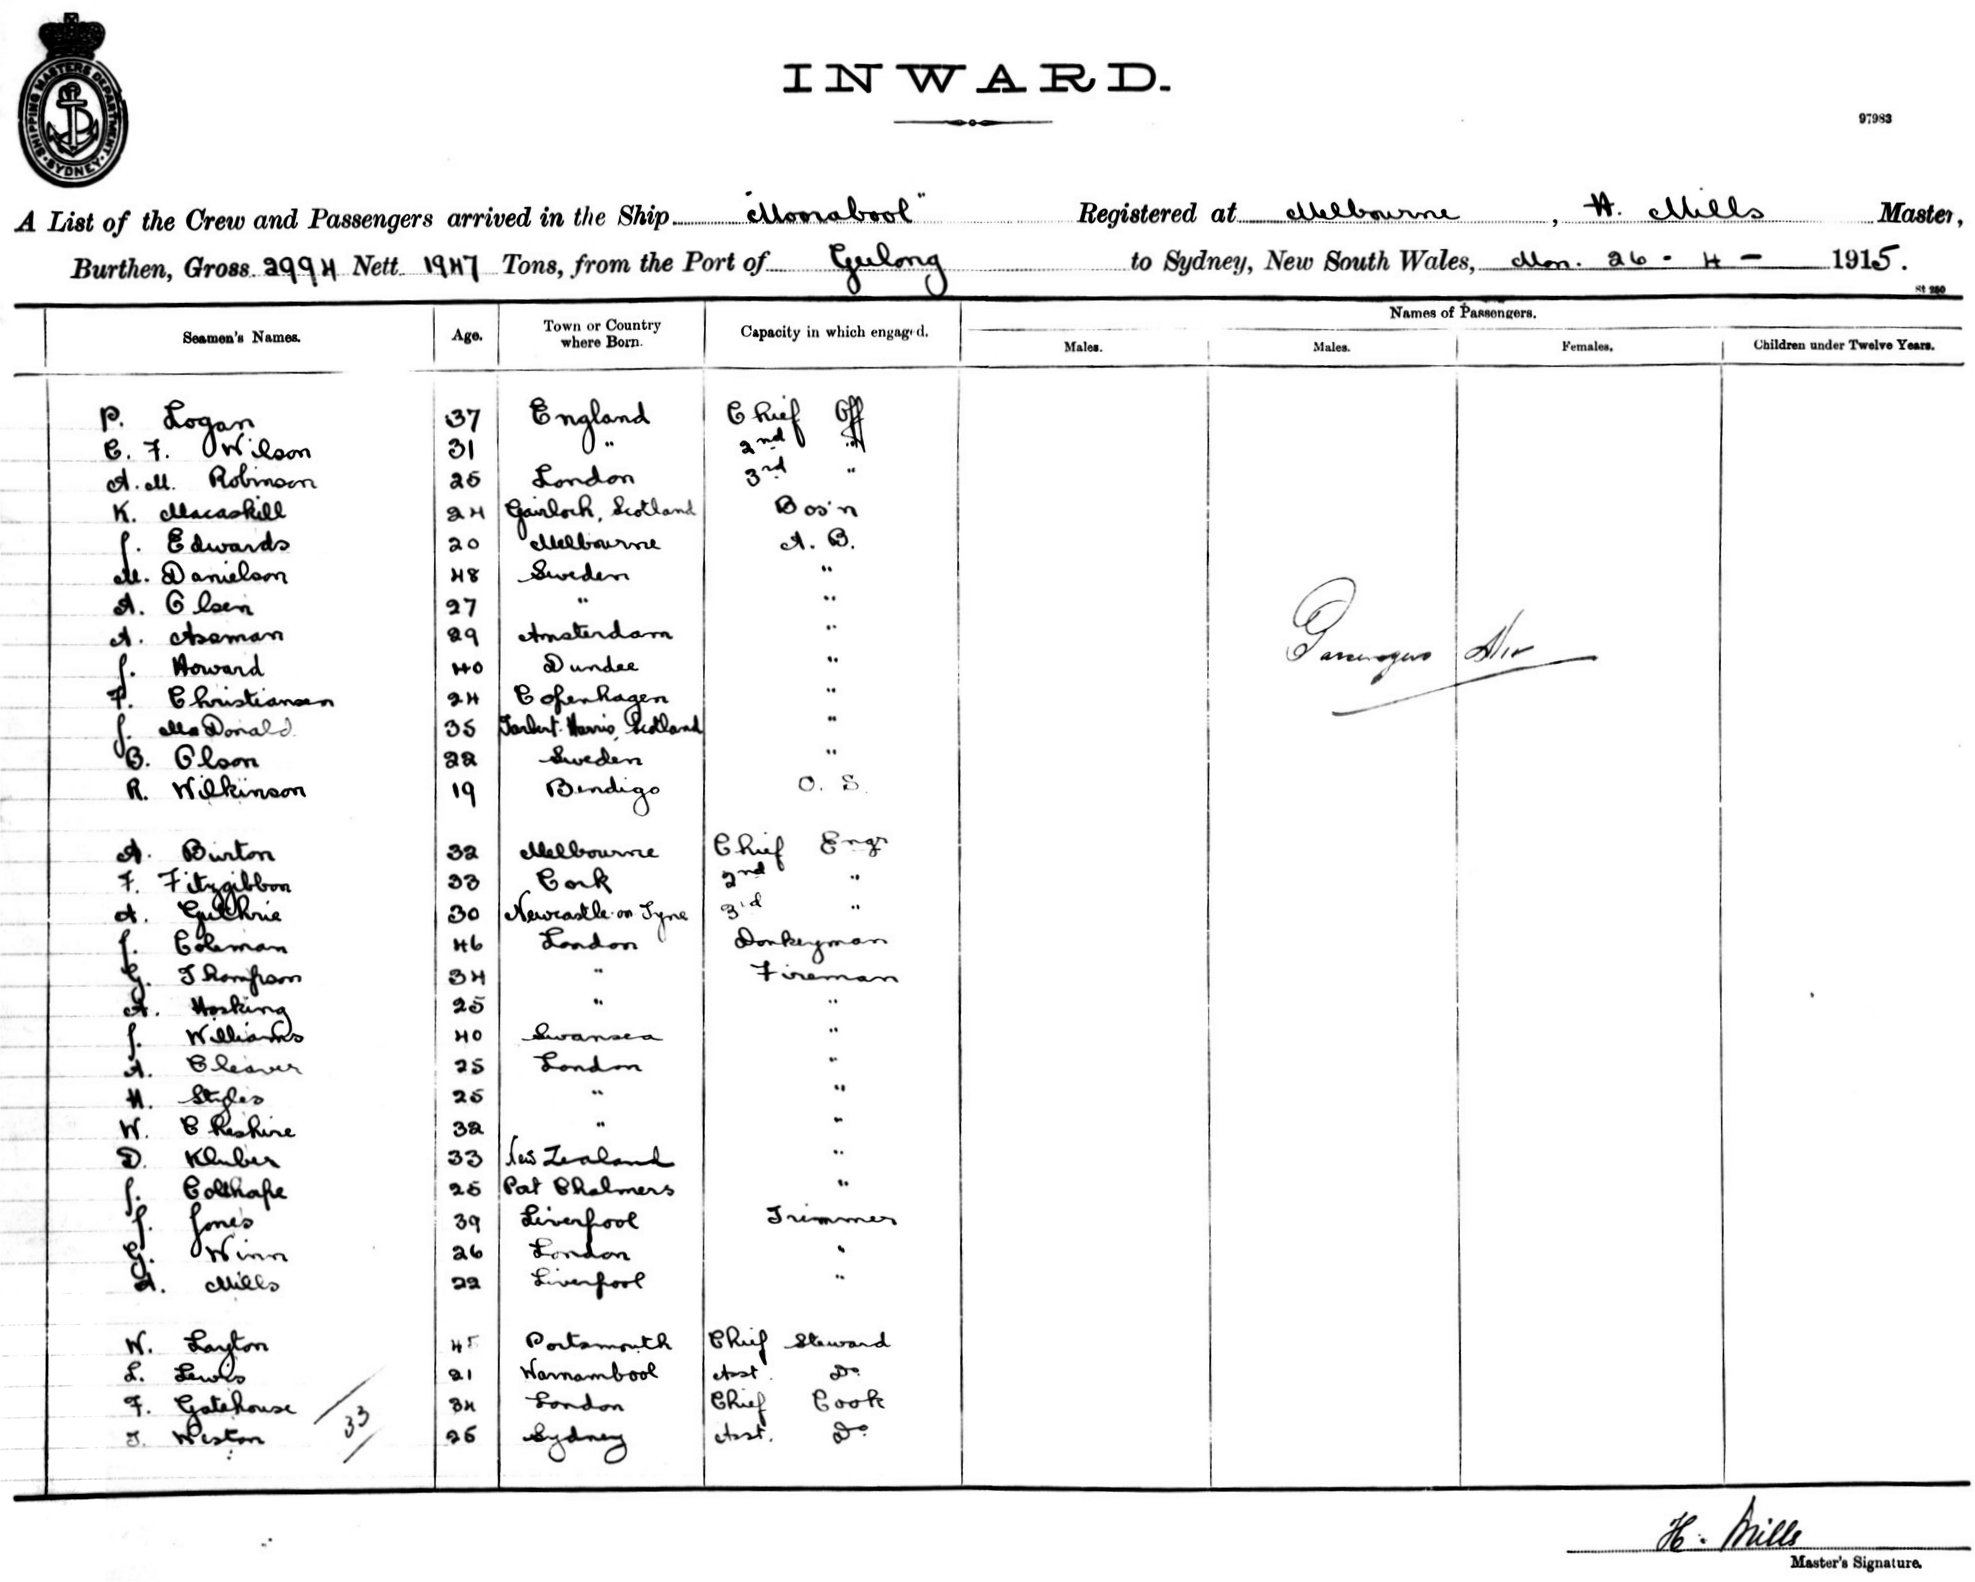 SHIPPING MASTERS DEPARTMENT · SYDNEY ·
INWARD.
97983
A List of the Crew and Passengers arrived in the Ship "Moorabool" Registered at Melbourne, H. Mills Master,
Burthen, Gross 2994 Nett 1947 Tons, from the Port of Geelong to Sydney, New South Wales, Mon. 26 - 4 - 1915.
St 250
Names of Passengers.
Seamen's Names. Age. Town or Country where Born. Capacity in which engaged. Males. Males. Females. Children under Twelve Years.
P. Logan 37 England Chief Off
C. F. Wilson 31 " 2nd "
A. M. Robinson 25 London 3rd "
K. Macaskill 24 Gairloch, Scotland Bos'n
J. Edwards 20 Melbourne A. B.
M. Danielson 48 Sweden "
A. Olsen 27 " "
A. Assman 29 Amsterdam "
J. Howard 40 Dundee "
F. Christiansen 24 Copenhagen "
J. MacDonald 35 Tarbert. Harris, Scotland "
B. Olson 22 Sweden "
R. Wilkinson 19 Bendigo O. S.
Passengers Nil
A. Burton 32 Melbourne Chief Engr
F. Fitzgibbon 33 Cork 2nd "
A. Guthrie 30 Newcastle on Tyne 3rd "
J. Coleman 46 London Donkeyman
G. Thompson 34 " Fireman
A. Hosking 25 " "
J. Williams 40 Swansea "
A. Cleaver 25 London "
H. Styles 25 " "
W. Cheshire 32 " "
D. Kluber 33 New Zealand "
J. Colthape 25 Port Chalmers "
J. Jones 39 Liverpool Trimmer
G. Winn 26 London "
A. Mills 22 Liverpool "
W. Layton 45 Portsmouth Chief Steward
L. Lewis 21 Warnambool Asst. Do
F. Gatehouse 34 London Chief Cook
33
J. Weston 25 Sydney Asst. Do
H. Mills
Master's Signature.